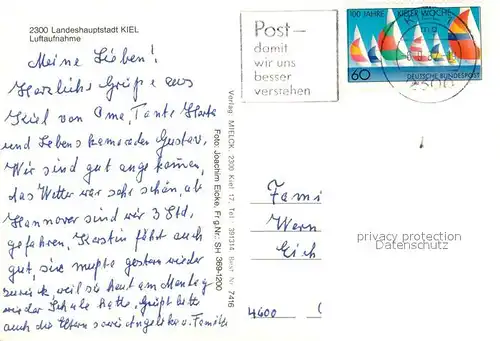 2300 Landeshauptstadt KIEL
Luftaufnahme
Meine Lieben!
Herzliche Grüße aus
Kiel von Oma, Tante Herta
und Lebenskameraden Gustav.
Wir sind gut angekommen,
das Wetter war sehr schön, ab
Hannover sind wir 3 Std.
gefahren, Kerstin fährt auch
gut, sie mußte gestern wieder
zurück, weil sie heut am Montag
wieder Schule hatte. Grüßt bitte
auch die Eltern sowie Angelika u. Familie
Verlag MIELCK, 2300 Kiel 17, Tel. 391314 Best. Nr. 7416
Foto: Joachim Eicke, Frg.Nr.: SH 369-1200
Post-
damit
wir uns
besser
verstehen
100 JAHRE KIELER WOCHE
60
DEUTSCHE BUNDESPOST
KIEL 1
2300
Fami
Wern
Eich
4600
privacy protection
Datenschutz